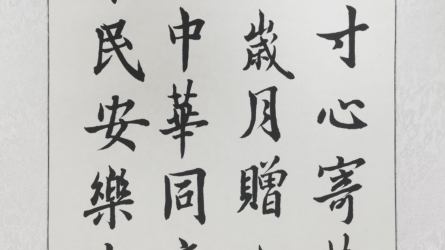 寸心寄
歲月贈
中華同
民安樂